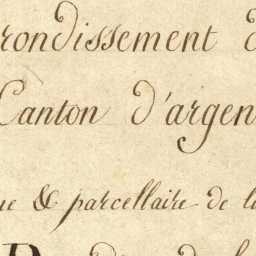 rondissement d
Canton d'argen
ue & parcellaire de la